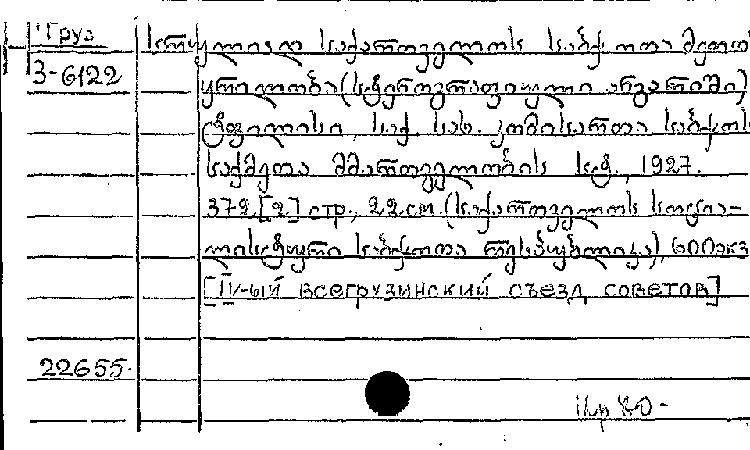 Груз
3-6122
სრულიად საქართველოს საბჭოთა მეოთხე
ყრილობა (სტენოგრაფიული ანგარიში)
ტფილისი, საქ. სახ. კომისართა საბჭოს
საქმეთა მმართველობის სტ., 1927.
372 [2] стр., 22 см (საქართველოს სოცია-
ლისტური საბჭოთა რესპუბლიკა), 600 экз
[IV-ый всегрузинский съезд советов]
22655.